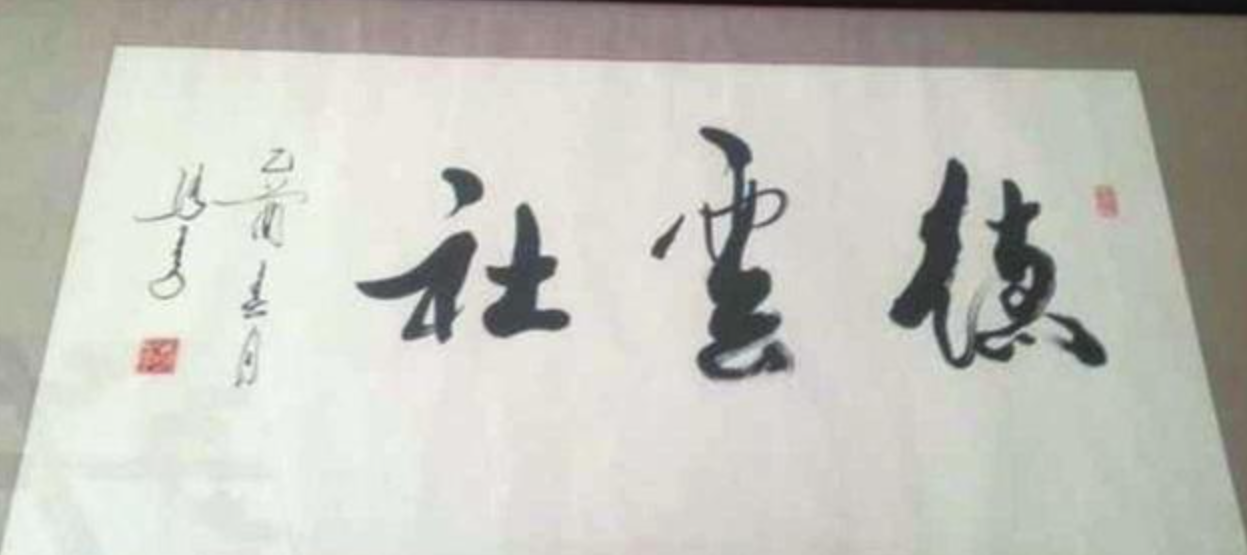 德雲社
乙酉 月